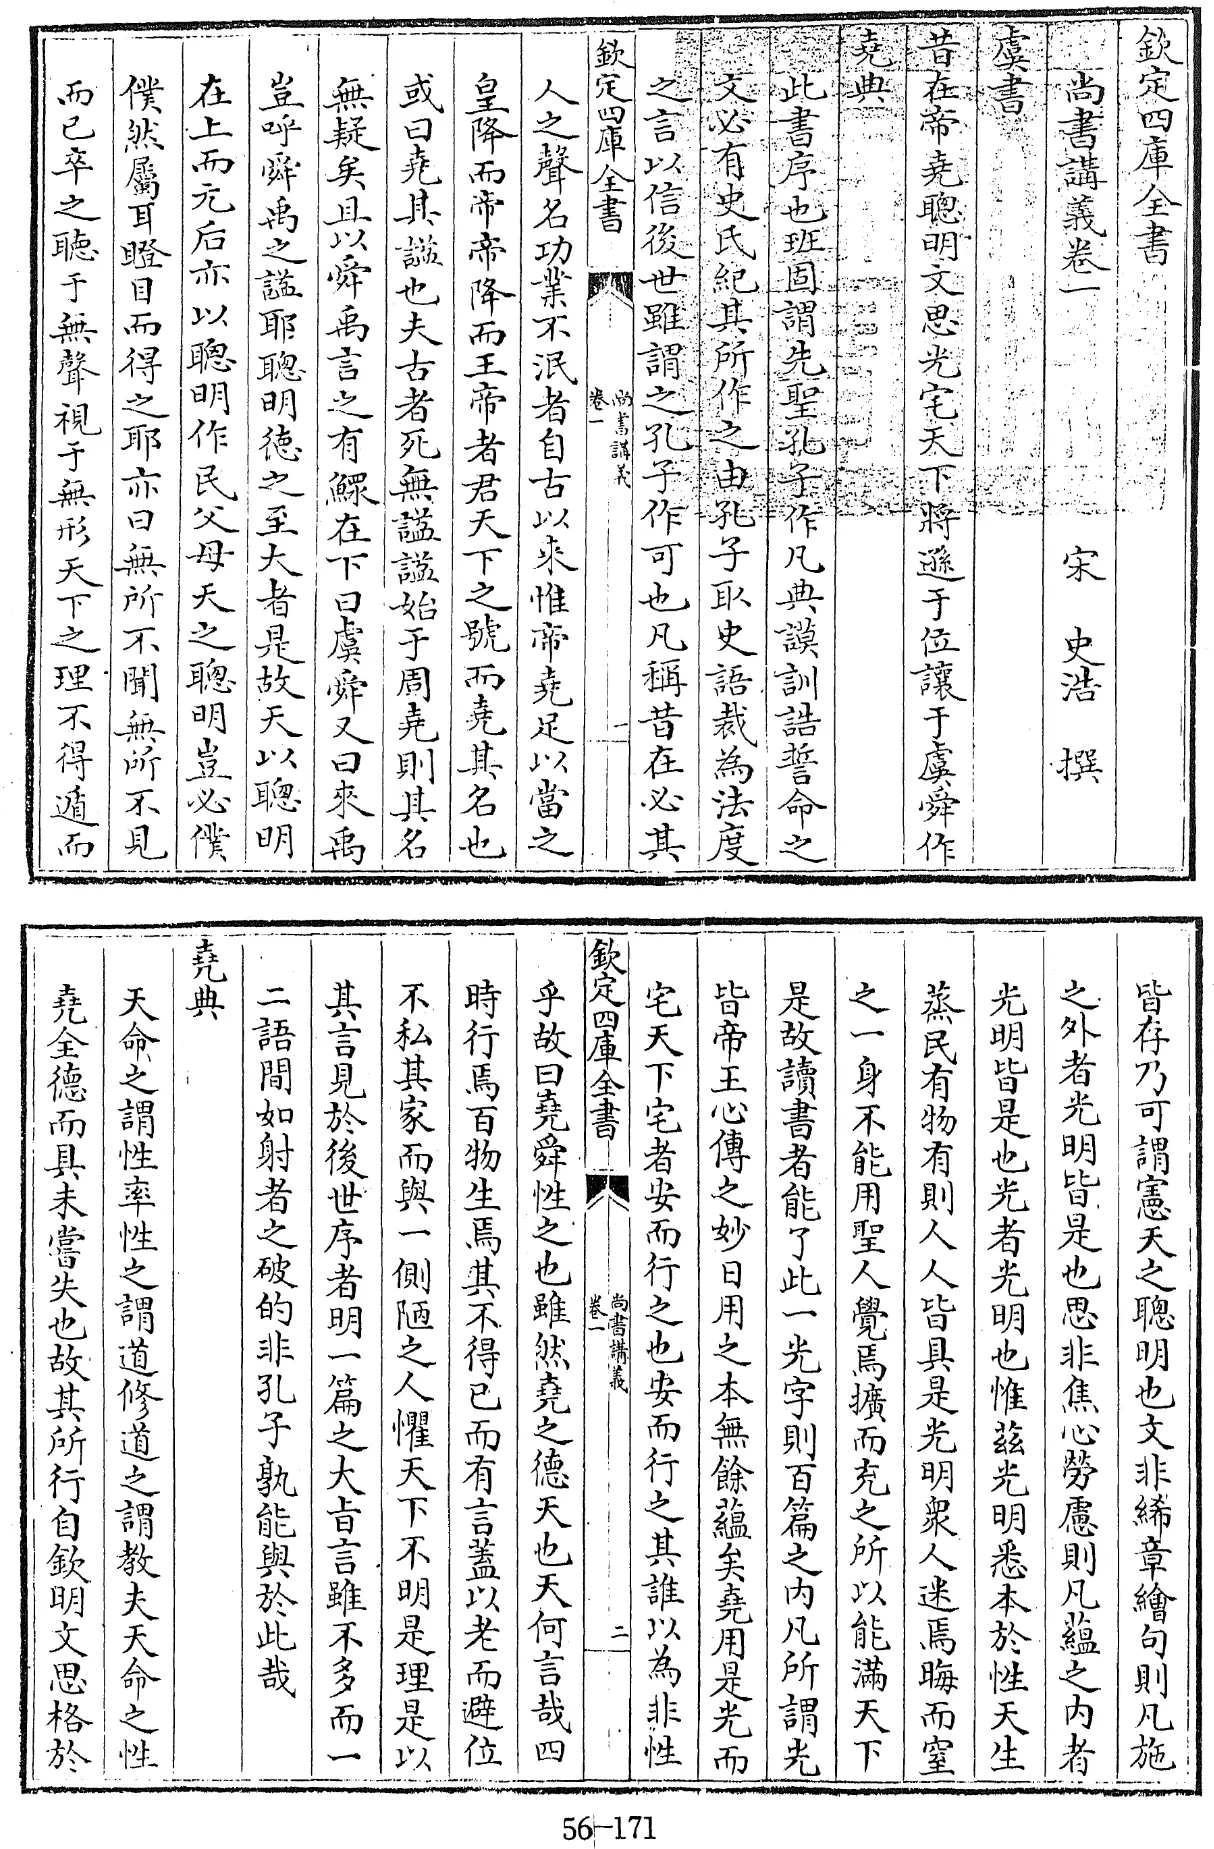 欽定四庫全書
尚書講義卷一
宋 史浩 撰
虞書
昔在帝堯聰明文思光宅天下將遜于位讓于虞舜作
堯典
此書序也班固謂先聖孔子作凡典謨訓誥誓命之
文必有史氏紀其所作之由孔子取史語裁為法度
之言以信後世雖謂之孔子作可也凡稱昔在必其
欽定四庫全書
尚書講義
卷一
一
人之聲名功業不泯者自古以來惟帝堯足以當之
皇降而帝帝降而王帝者君天下之號而堯其名也
或曰堯其諡也夫古者死無諡諡始于周堯則其名
無疑矣且以舜禹言之有鰥在下曰虞舜又曰來禹
豈呼舜禹之諡耶聰明德之至大者是故天以聰明
在上而元后亦以聰明作民父母天之聰明豈必僕
僕然屬耳瞪目而得之耶亦曰無所不聞無所不見
而已卒之聽于無聲視于無形天下之理不得遁而
皆存乃可謂憲天之聰明也文非絺章繪句則凡施
之外者光明皆是也思非焦心勞慮則凡蘊之内者
光明皆是也光者光明也惟茲光明悉本於性天生
蒸民有物有則人人皆具是光明衆人迷焉晦而窒
之一身不能用聖人覺焉擴而充之所以能滿天下
是故讀書者能了此一光字則百篇之内凡所謂光
皆帝王心傳之妙日用之本無餘蘊矣堯用是光而
宅天下宅者安而行之也安而行之其誰以為非性
欽定四庫全書
尚書講義
卷一
二
乎故曰堯舜性之也雖然堯之德天也天何言哉四
時行焉百物生焉其不得已而有言蓋以老而避位
不私其家而與一側陋之人懼天下不明是理是以
其言見於後世序者明一篇之大旨言雖不多而一
二語間如射者之破的非孔子孰能與於此哉
堯典
天命之謂性率性之謂道修道之謂教夫天命之性
堯全德而具未嘗失也故其所行自欽明文思格於
56-171